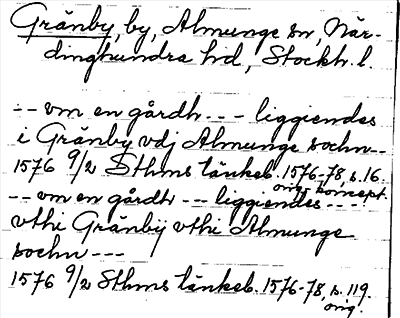 Gränby, by, Almunge sn, När-
dinghundra hd, Stockh. l.
-- vm en gårdh --- liggiendes
i Gränby vdj Almunge sochn--
1576 9/2 Sthms tänkeb. 1576-78, s. 16.
orig. koncept.
-- vm en gårdh --- liggiendes ----
vthi Gränbÿ vthi Almunge
sochn ---
1576 9/2 Sthms tänkeb. 1576-78, s. 119.
orig.